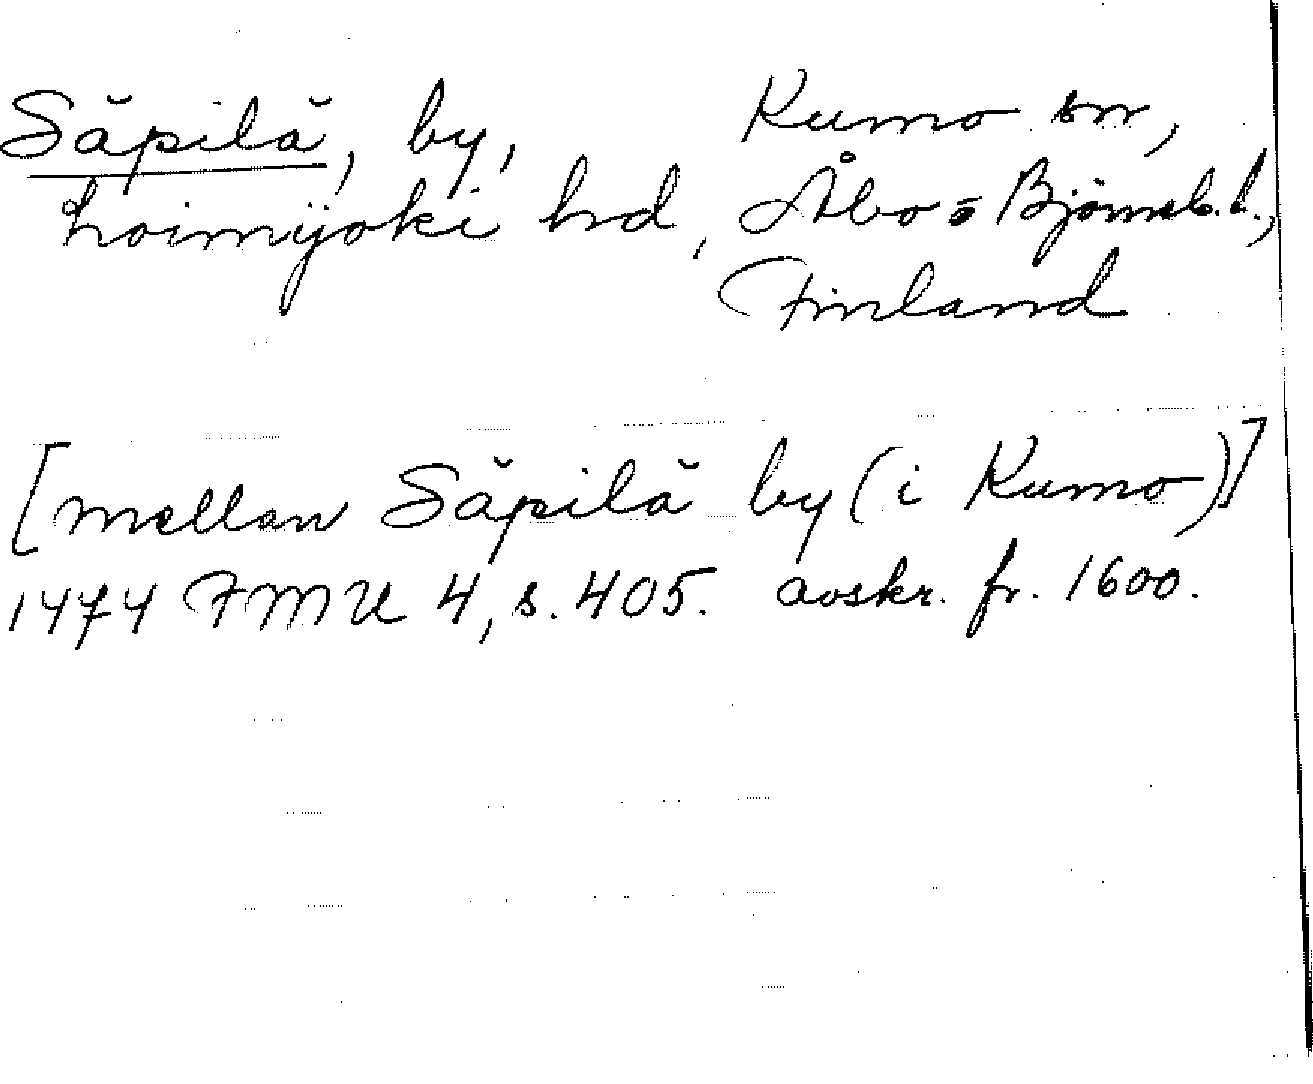 Säpilä, by, Kumo sn,
Loimijoki hd, Åbo = Björneb. l.,
Finland
[mellan Säpilä by (i Kumo)]
1474 FMU 4, s. 405. avskr. fr. 1600.